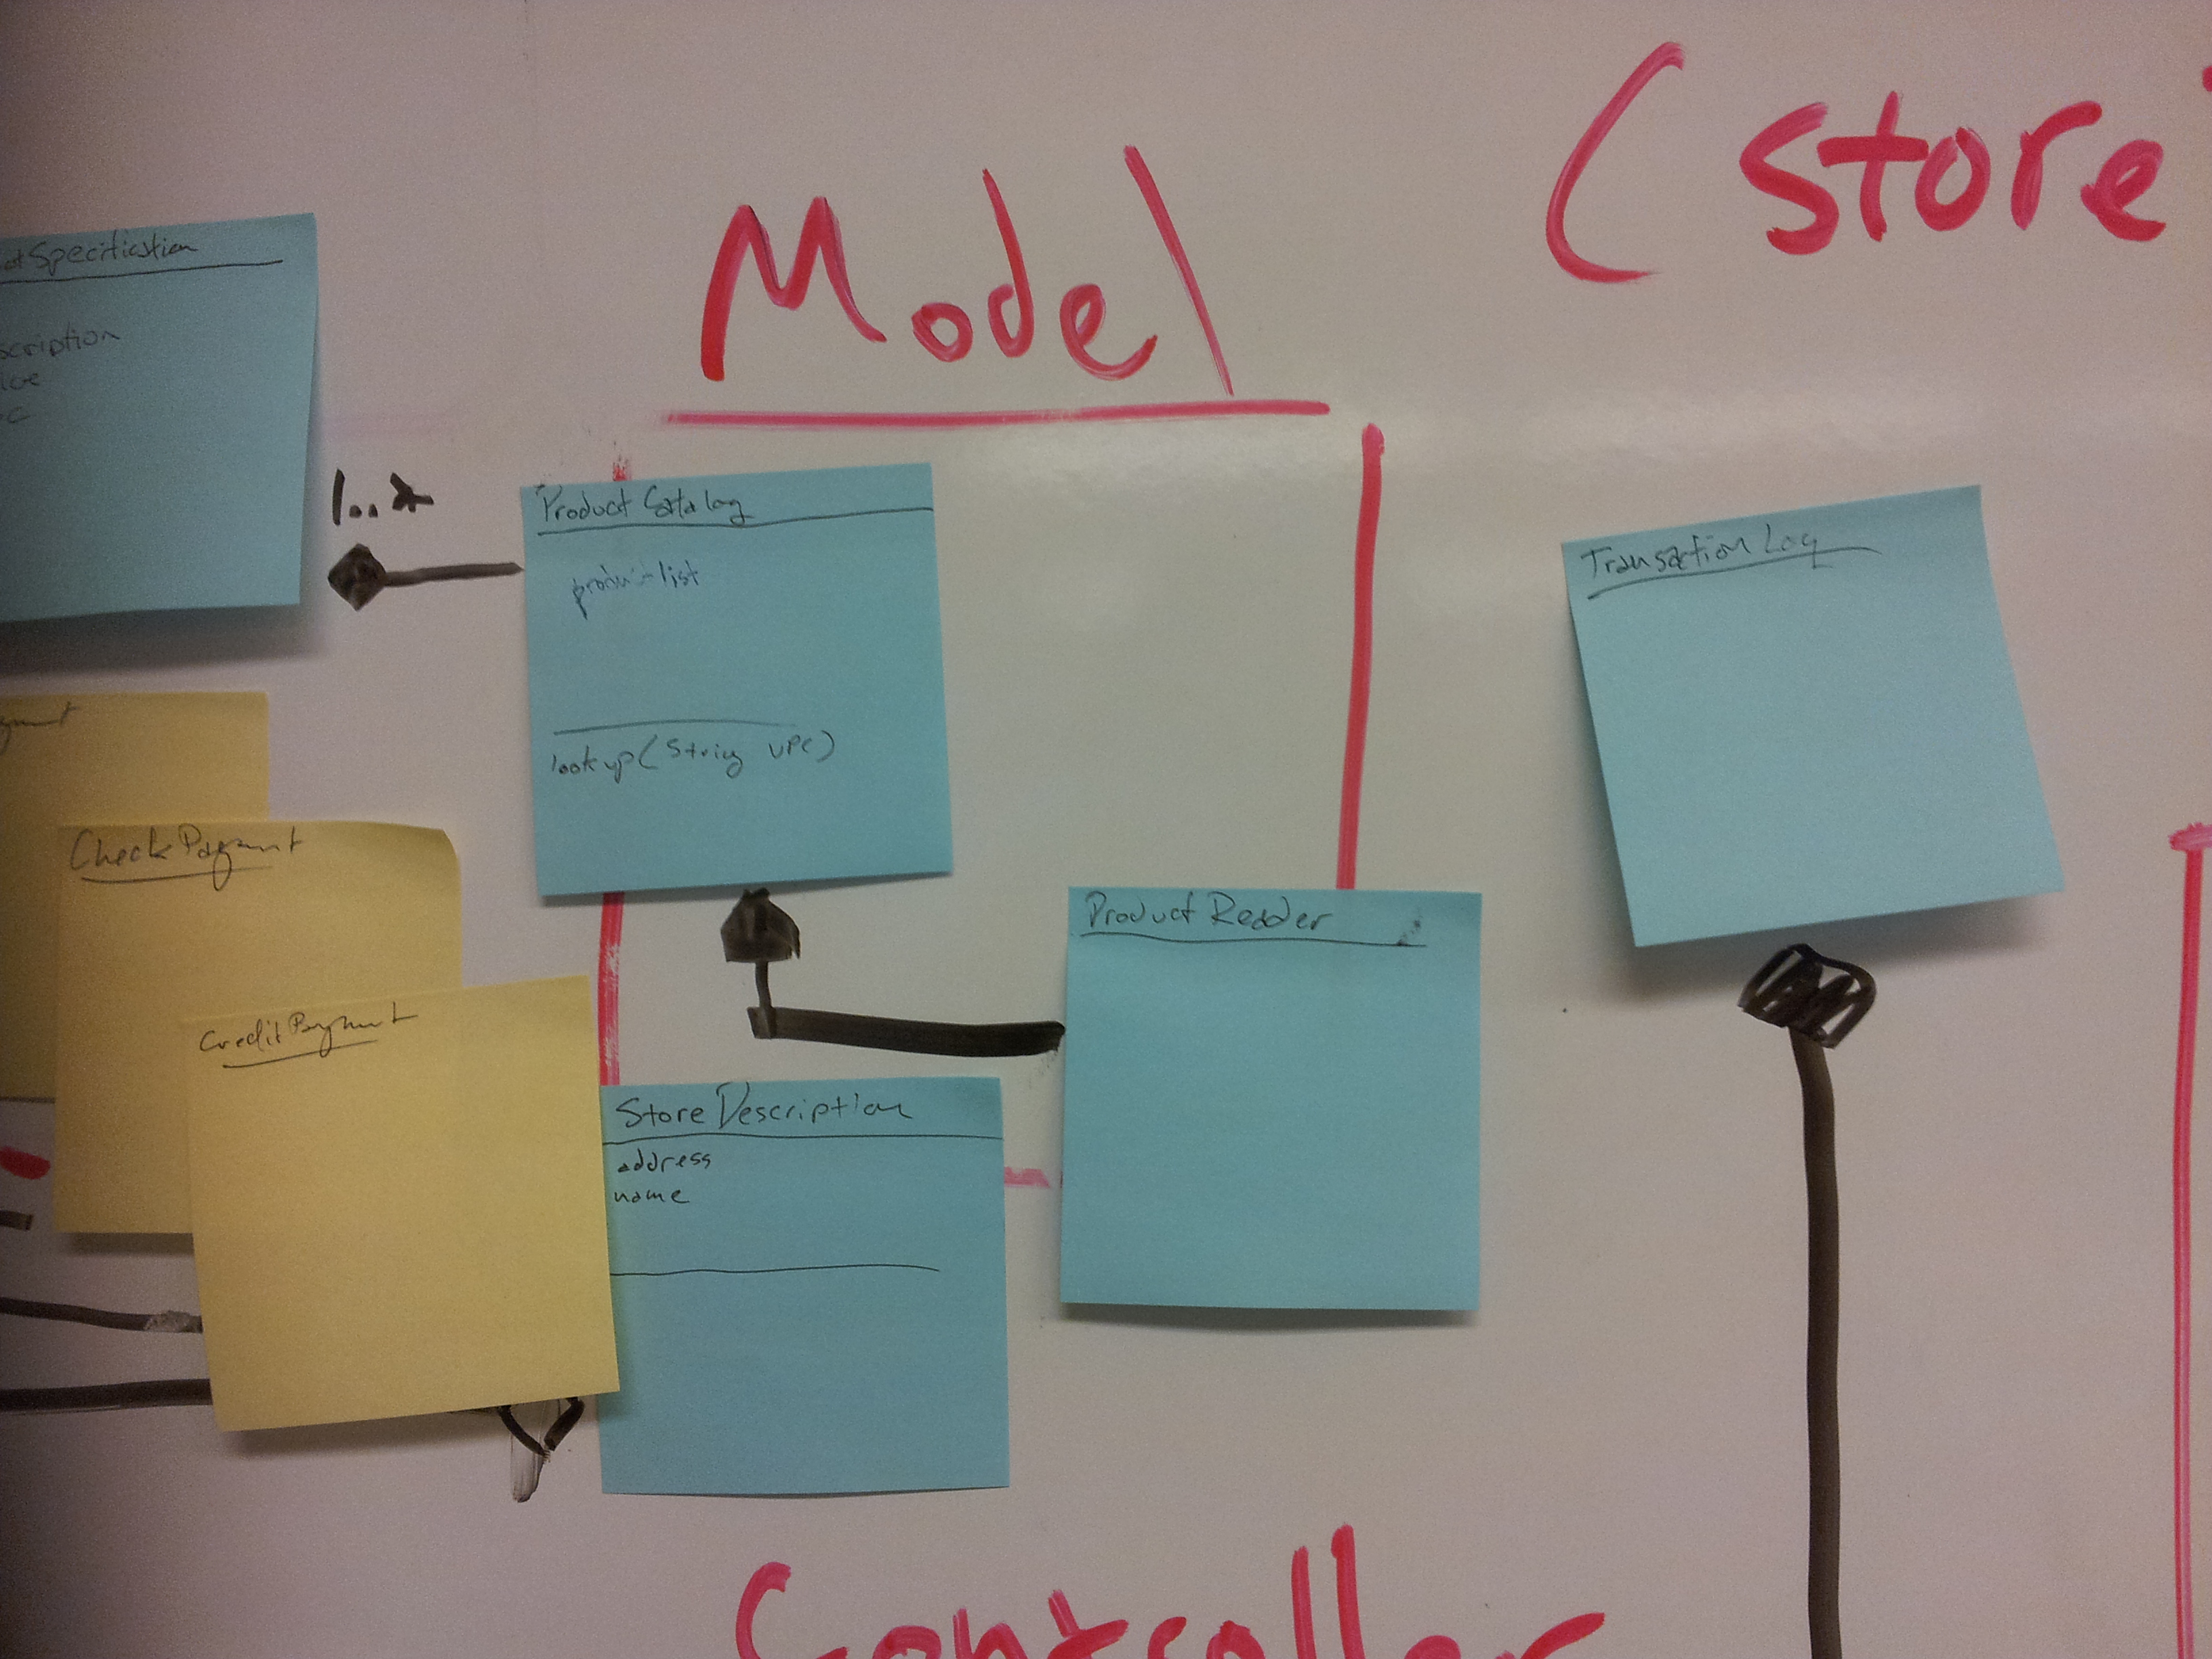 (store
Model
otSpecification
scription
ice
c
1..*
ProductCatalog
product list
lookup(String UPC)
TransactionLog
yment
CheckPayment
CreditPayment
ProductReader
StoreDescription
address
name
Controller